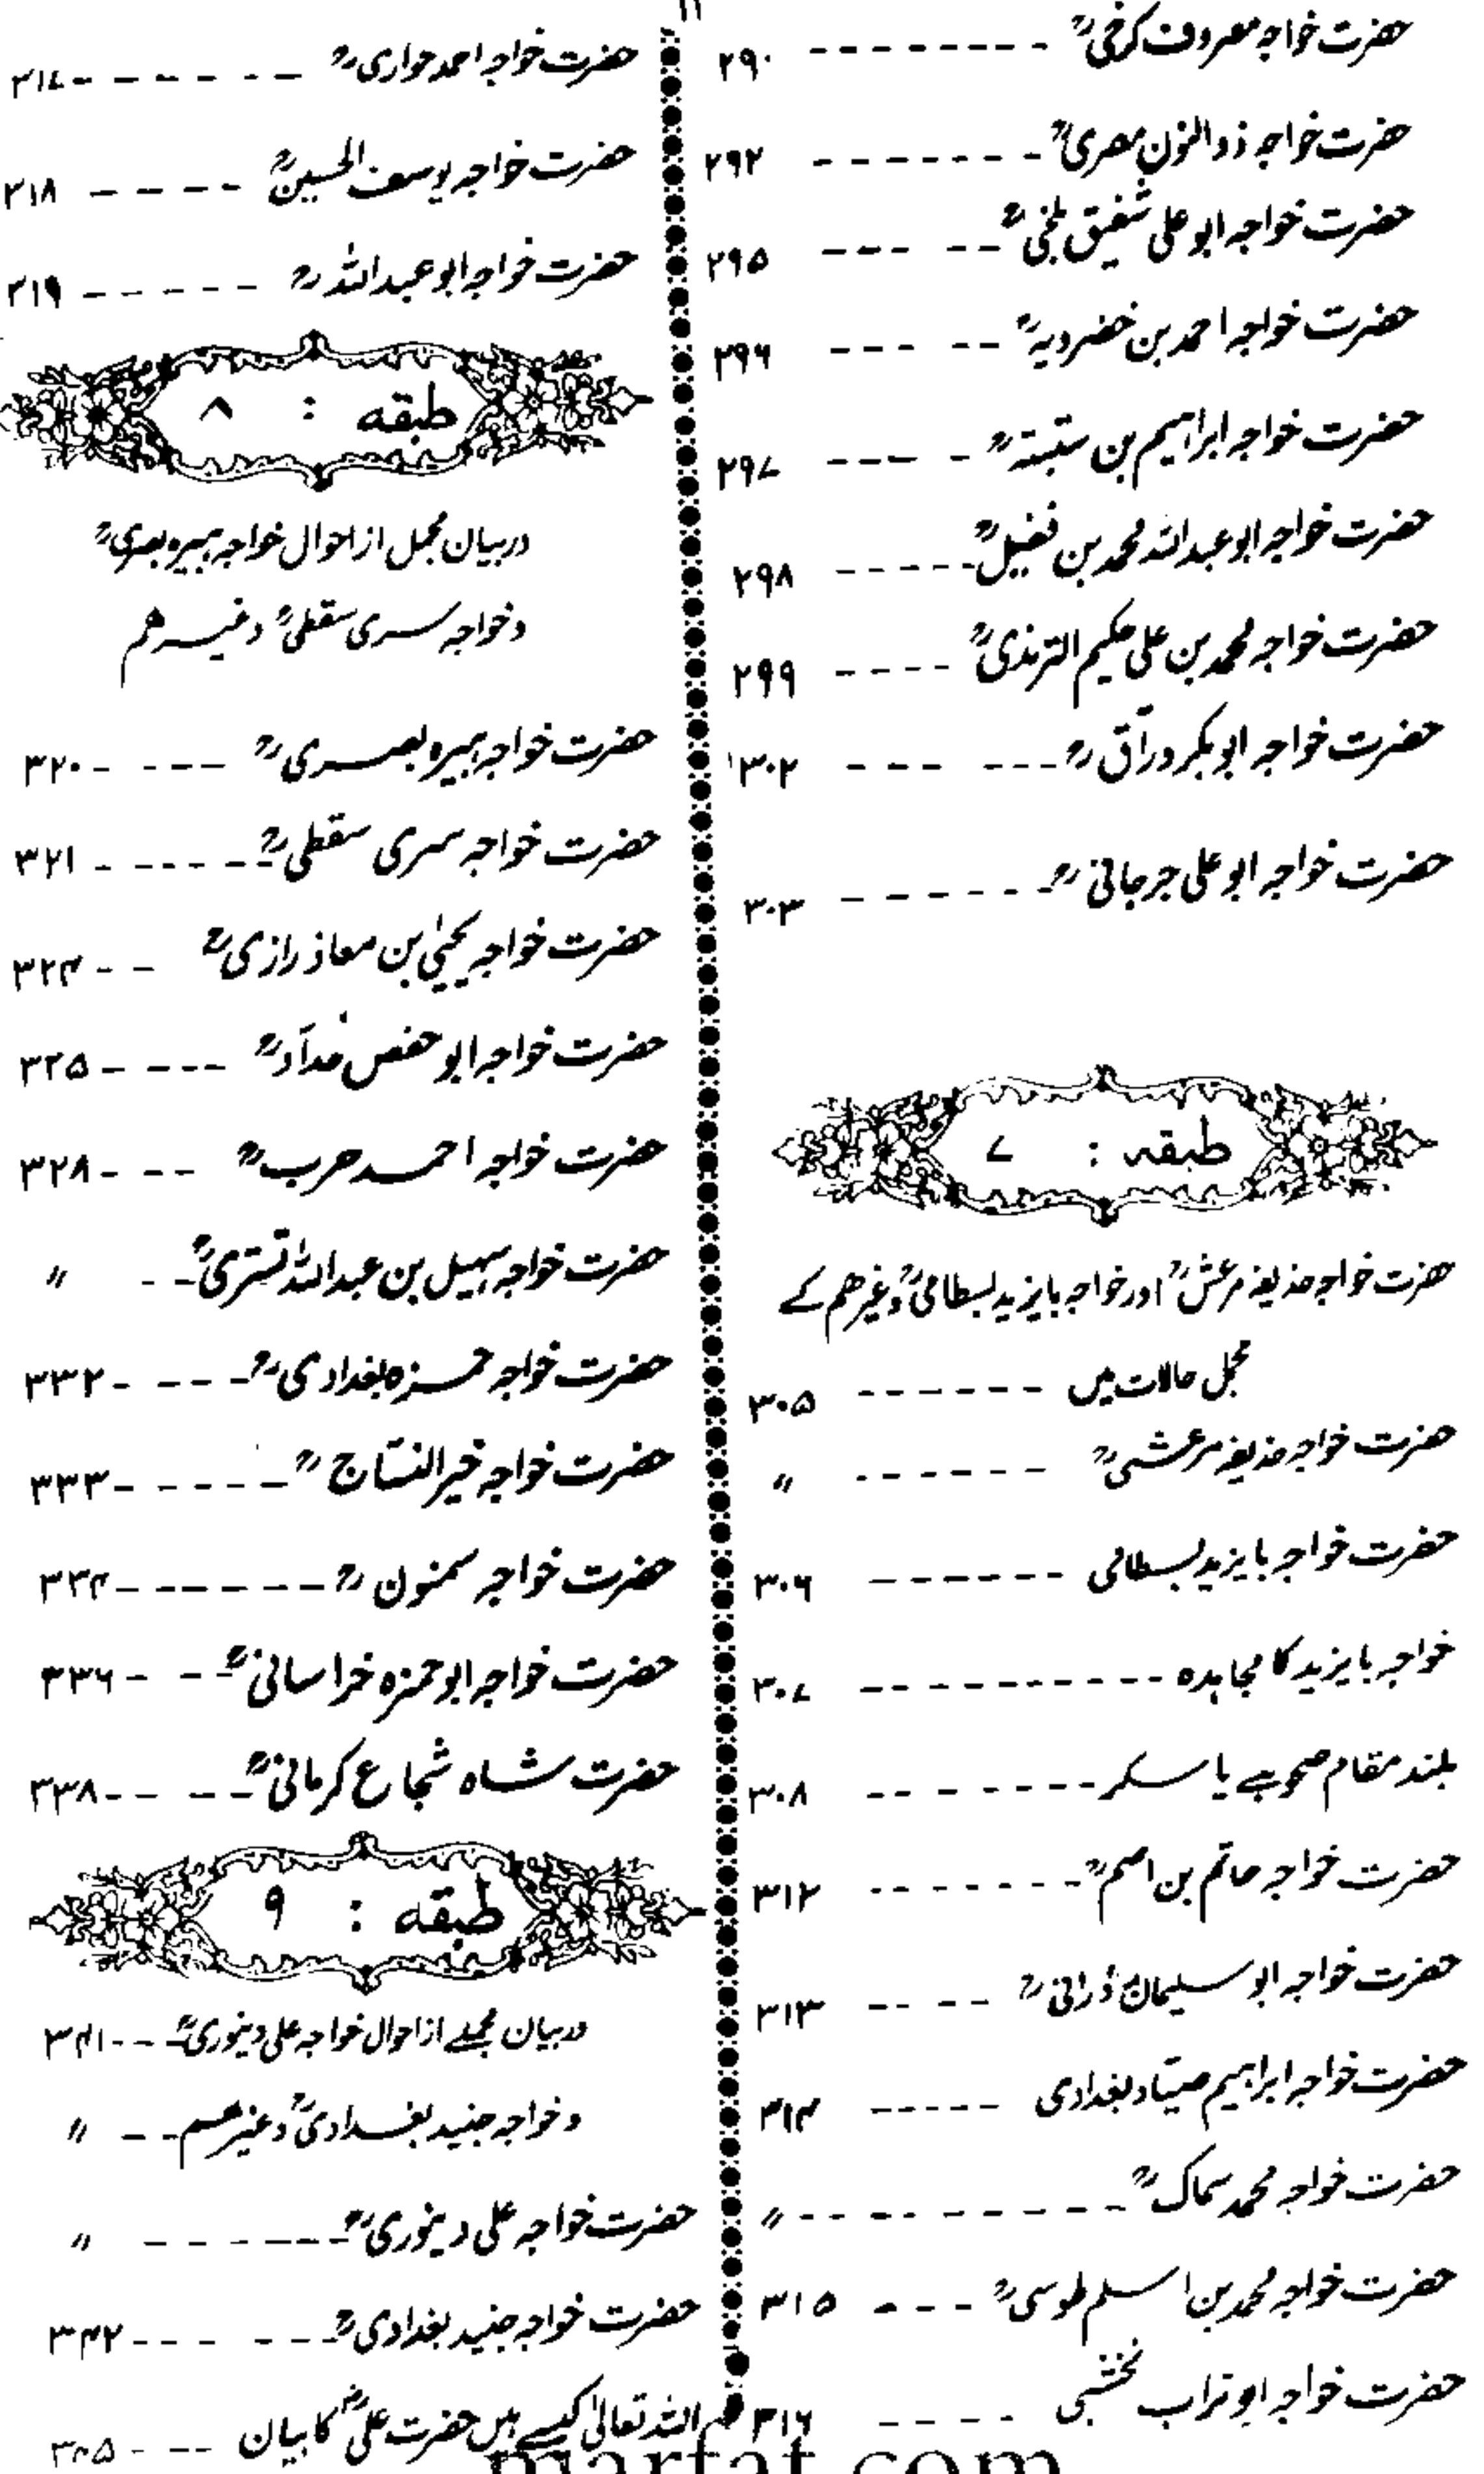 ۱۱
حضرت خواجہ معروف کرخیؒ -------- ۲۹۰
حضرت خواجہ ذوالنون مصریؒ ------- ۲۹۲
حضرت خواجہ ابو علی شفیق بلخیؒ -- --- ۲۹۵
حضرت خواجہ احمد بن خضرویہؒ -- --- ۲۹۶
حضرت خواجہ ابراہیم بن ستبتہؒ - --- ۲۹۷
حضرت خواجہ ابو عبداللہ محمد بن فضیلؒ ----- ۲۹۸
حضرت خواجہ محمد بن علی حکیم الترمذیؒ ---- ۲۹۹
حضرت خواجہ ابو بکر ورّاقؒ --- --- ۳۰۲
حضرت خواجہ ابو علی جرجانیؒ ------ ۳۰۳
طبقہ : ۷
حضرت خواجہ حذیفہ مرعشیؒ اور خواجہ بایزید بسطامیؒ وغیرھم کے
مجمل حالات میں ------ ۳۰۵
حضرت خواجہ حذیفہ مرعشیؒ ------ 〃
حضرت خواجہ بایزید بسطامی ------ ۳۰۶
خواجہ بایزید کا مجاہدہ ---------- ۳۰۷
بلند مقام صحو ہے یا سکر -------- ۳۰۸
حضرت خواجہ حاتم بن اصمؒ ------- ۳۱۲
حضرت خواجہ ابو سلیمان دُرانیؒ ---- ۳۱۳
حضرت خواجہ ابراہیم صیّاد بغدادی ----- ۳۱۴
حضرت خواجہ محمد سماکؒ --------- 〃
حضرت خواجہ محمد بن اسلم طوسیؒ --- - ۳۱۵
حضرت خواجہ ابو تراب نخشبی ---- ۳۱۶
حضرت خواجہ احمد حواریؒ ------- ۳۱۷
حضرت خواجہ یوسف الحسینؒ ----- ۳۱۸
حضرت خواجہ ابو عبداللہؒ ------ ۳۱۹
طبقہ : ۸
دربیان مجمل از احوال خواجہ ہبیرہ بصریؒ
وخواجہ سری سقطیؒ وغیرھم
حضرت خواجہ ہبیرہ بصریؒ --- --- ۳۲۰
حضرت خواجہ سری سقطیؒ ------ ۳۲۱
حضرت خواجہ یحییٰ بن معاذ رازیؒ --- ۳۲۴
حضرت خواجہ ابو حفص حدّادؒ ----- ۳۲۵
حضرت خواجہ احمد حربؒ -- --- ۳۲۸
حضرت خواجہ سہیل بن عبداللہ تستریؒ -- 〃
حضرت خواجہ حمزہ بغدادیؒ ----- ۳۳۲
حضرت خواجہ خیر النسّاجؒ ------ ۳۳۳
حضرت خواجہ سمنونؒ ------- ۳۳۴
حضرت خواجہ ابو حمزہ خراسانیؒ -- - ۳۳۶
حضرت شاہ شجاع کرمانیؒ -- --- ۳۳۸
طبقہ : ۹
دربیان مجملے از احوال خواجہ علی دینوریؒ --- ۳۴۱
وخواجہ جنید بغدادیؒ وغیرھم -- - 〃
حضرت خواجہ علی دینوریؒ ------ 〃
حضرت خواجہ جنید بغدادیؒ --- --- ۳۴۲
اللہ تعالیٰ کیسے ہیں حضرت علیؓ کا بیان --- ۳۴۵
marfat.com